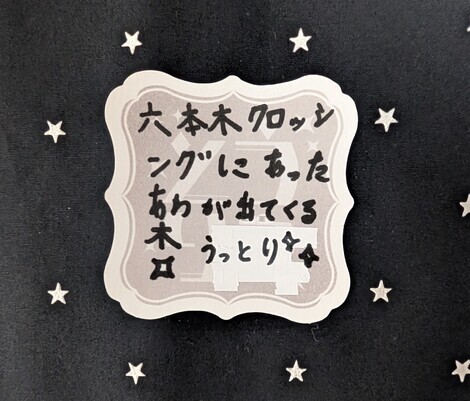 六本木クロッシ
ングにあった
あわが出てくる
木 うっとり